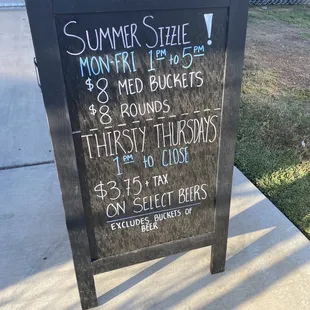 SUMMER SIZZLE !
MON-FRI 1PM TO 5PM
$8 MED BUCKETS
$8 ROUNDS
THIRSTY THURSDAYS
1PM TO CLOSE
$3.75 + TAX
ON SELECT BEERS
EXCLUDES BUCKETS OF
BEER